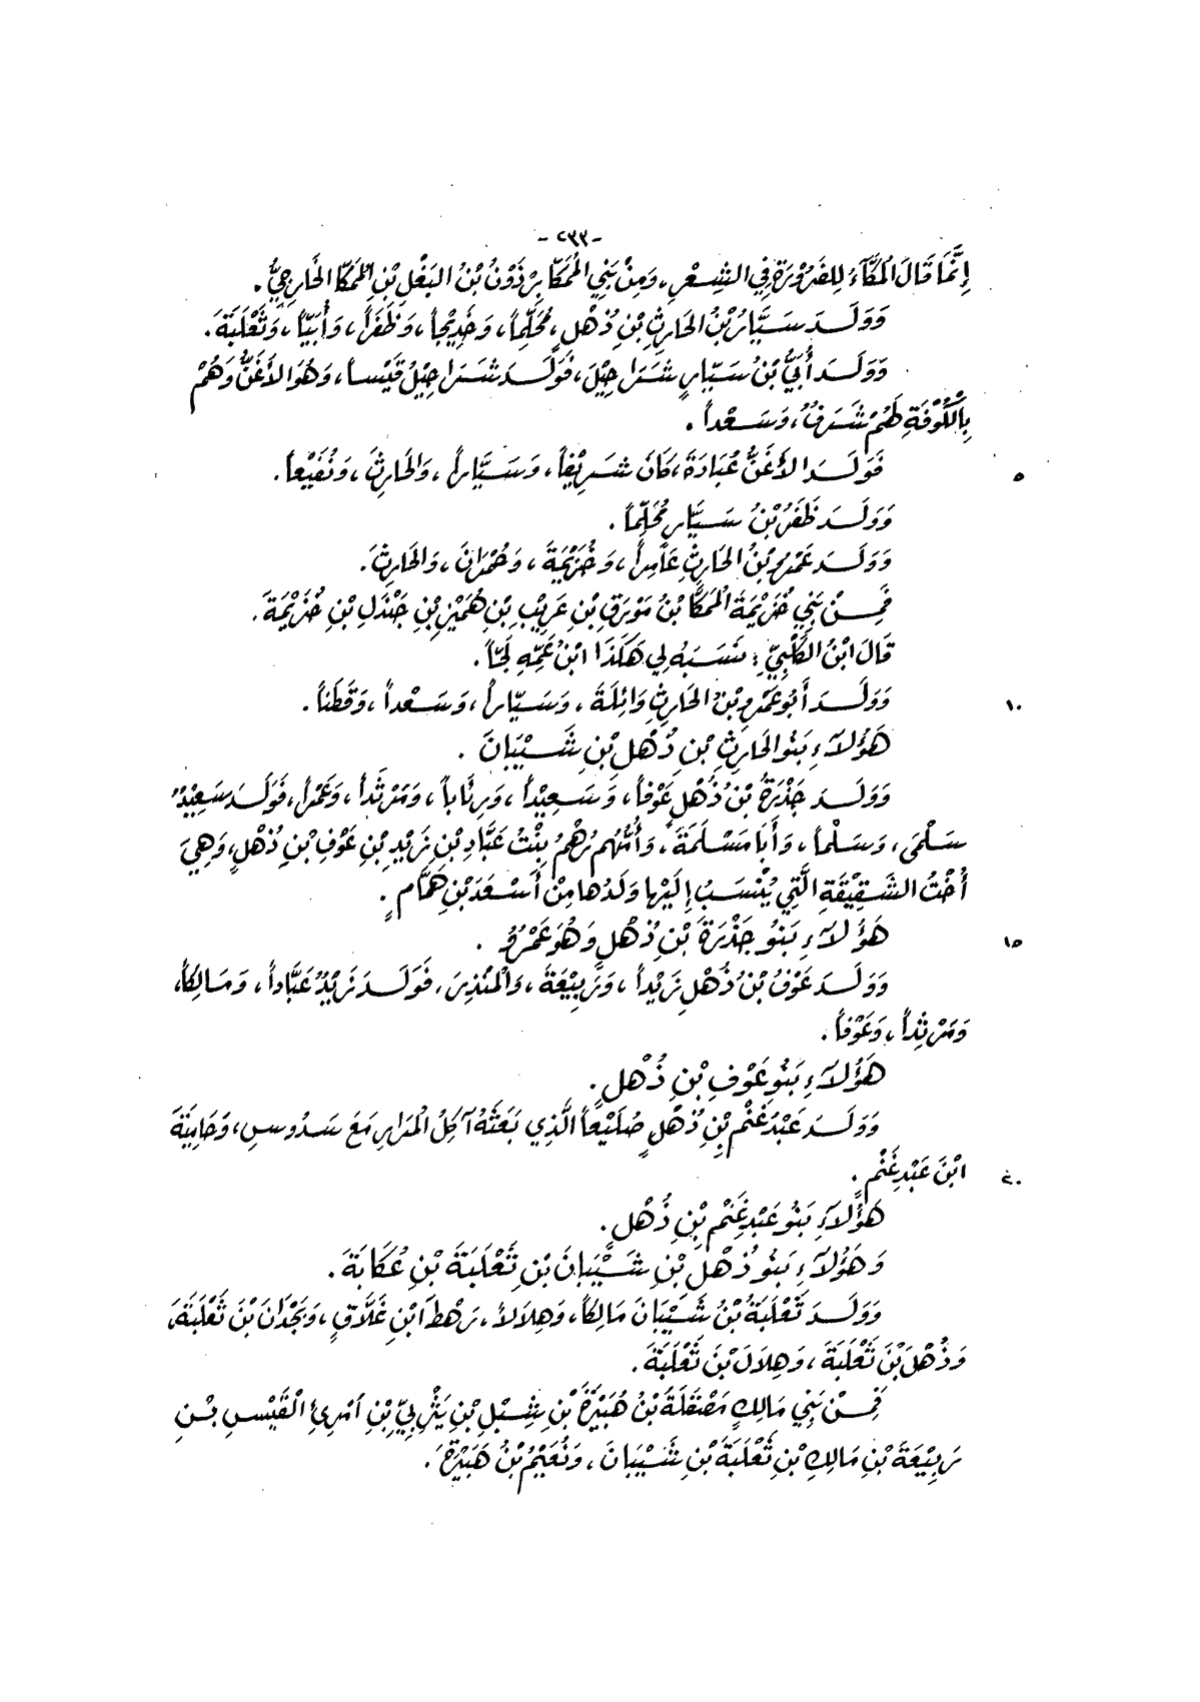 -٢٣٣-
إِنَّمَا قَالَ المَكَّآءَ لِلضَرُوْرَةِ فِي الشِعْرِ، وَمِنْ بَنِي المُمَكَّا بِرْذَوْنُ بْنُ البَغْلِ بْنِ المُمَكّا الخَارِجِيُّ.
وَوَلَدَ سَيَّارُ بْنُ الحَارِثِ بْنِ ذُهْلٍ مُحَلِّماً، وَخَدِيْجاً، وَظَفَراً، وَأُبَيّاً، وَثَعْلَبَةَ.
وَوَلَدَ أُبَيُّ بْنُ سَيّارٍ شَرَاحِيْلَ، فَوَلَدَ شَرَاحِيْلُ قَيْساً، وَهُوَ الأَغَنُّ وَهُمْ
بِالكُوْفَةِ لَهُمْ شَرَفٌ، وَسَعْداً.
٥ فَوَلَدَ الأَغَنُّ عُبَادَةَ، كَانَ شَرِيْفاً، وَسَيَّاراً، وَالحَارِثَ، وَنُفَيْعاً.
وَوَلَدَ ظَفَرُ بْنُ سَيَّارٍ مُحَلِّماً.
وَوَلَدَ عَمْرُو بْنُ الحَارِثِ عَامِراً، وَخُزَيْمَةَ، وَحُمْرَانَ، وَالحَارِثَ.
فَمِنْ بَنِي خُزَيْمَةَ المُمَكَّا بْنُ مَوْرَقِ بْنِ عَرِيْبِ بْنِ هُمَيْزِ بْنِ جَنْدَلِ بْنِ خُزَيْمَةَ.
قَالَ ابْنُ الكَلْبِيِّ: نَسَبَهُ لِي هَكَذَا ابْنُ عَمِّهِ لَحّاً.
١٠ وَوَلَدَ أَبُو عَمْرِو بْنُ الحَارِثِ وَائِلَةَ، وَسَيّاراً، وَسَعْداً، وَقَطَناً.
هَؤُلاَءِ بَنُو الحَارِثِ بْنِ ذُهْلِ بْنِ شَيْبَانَ.
وَوَلَدَ جَذْرَةُ بْنُ ذُهْلٍ عَوْفاً، وَسَعِيْداً، وَرِئَاباً، وَمَرْثَداً، وَعَمْراً، فَوَلَدَ سَعِيْدُ
سَلْمَى، وَسَلْماً، وَأَبَا مَسْلَمَةَ، وَأُمُّهُمْ رُهْمُ بِنْتُ عَبَّادِ بْنِ زَيْدِ بْنِ عَوْفِ بْنِ ذُهْلٍ، وَهِيَ
أُخْتُ الشَقِيْقَةِ الَّتِي يُنْسَبُ إِلَيْهَا وَلَدُهَا مِنْ أَسْعَدَ بْنِ هَمَّامٍ.
١٥ هَؤُلاَءِ بَنُو جَذْرَةَ بْنِ ذُهْلٍ وَهُوَ عَمْرُو.
وَوَلَدَ عَوْفُ بْنُ ذُهْلٍ زَيْداً، وَرَبِيْعَةَ، وَالمُنْذِرَ، فَوَلَدَ زَيْدُ عَبَّاداً، وَمَالِكاً،
وَمَرْثِداً، وَعَوْفاً.
هَؤُلاَءِ بَنُو عَوْفِ بْنِ ذُهْلٍ.
وَوَلَدَ عَبْدُ غَنْمِ بْنِ ذُهْلٍ صُلَيْعاً الَّذِي بَعَثَهُ آكِلُ المُرَارِ مَعَ سَدُوسٍ، وَحَابِيَةَ
٢٠ ابْنَ عَبْدِ غَنْمٍ.
هَؤُلاَءِ بَنُو عَبْدِ غَنْمِ بْنِ ذُهْلٍ.
وَهَؤُلاَءِ بَنُو ذُهْلِ بْنِ شَيْبَانَ بْنِ ثَعْلَبَةَ بْنِ عُكَابَةَ.
وَوَلَدَ ثَعْلَبَةُ بْنُ شَيْبَانَ مَالِكاً، وَهِلاَلاً، رَهْطَ ابْنِ غَلَّاقٍ، وَبَجْدَانَ بْنَ ثَعْلَبَةَ،
وَذُهْلَ بْنَ ثَعْلَبَةَ، وَهِلاَلَ بْنَ ثَعْلَبَةَ.
فَمِنْ بَنِي مَالِكٍ مَصْقَلَةُ بْنُ هُبَيْرَةَ بْنِ شِبْلِ بْنِ يَثْرِبِيِّ بْنِ امْرِئِ القَيْسِ بْنِ
رَبِيْعَةَ بْنِ مَالِكِ بْنِ ثَعْلَبَةَ بْنِ شَيْبَانَ، وَنُعَيْمُ بْنُ هُبَيْرَةَ.